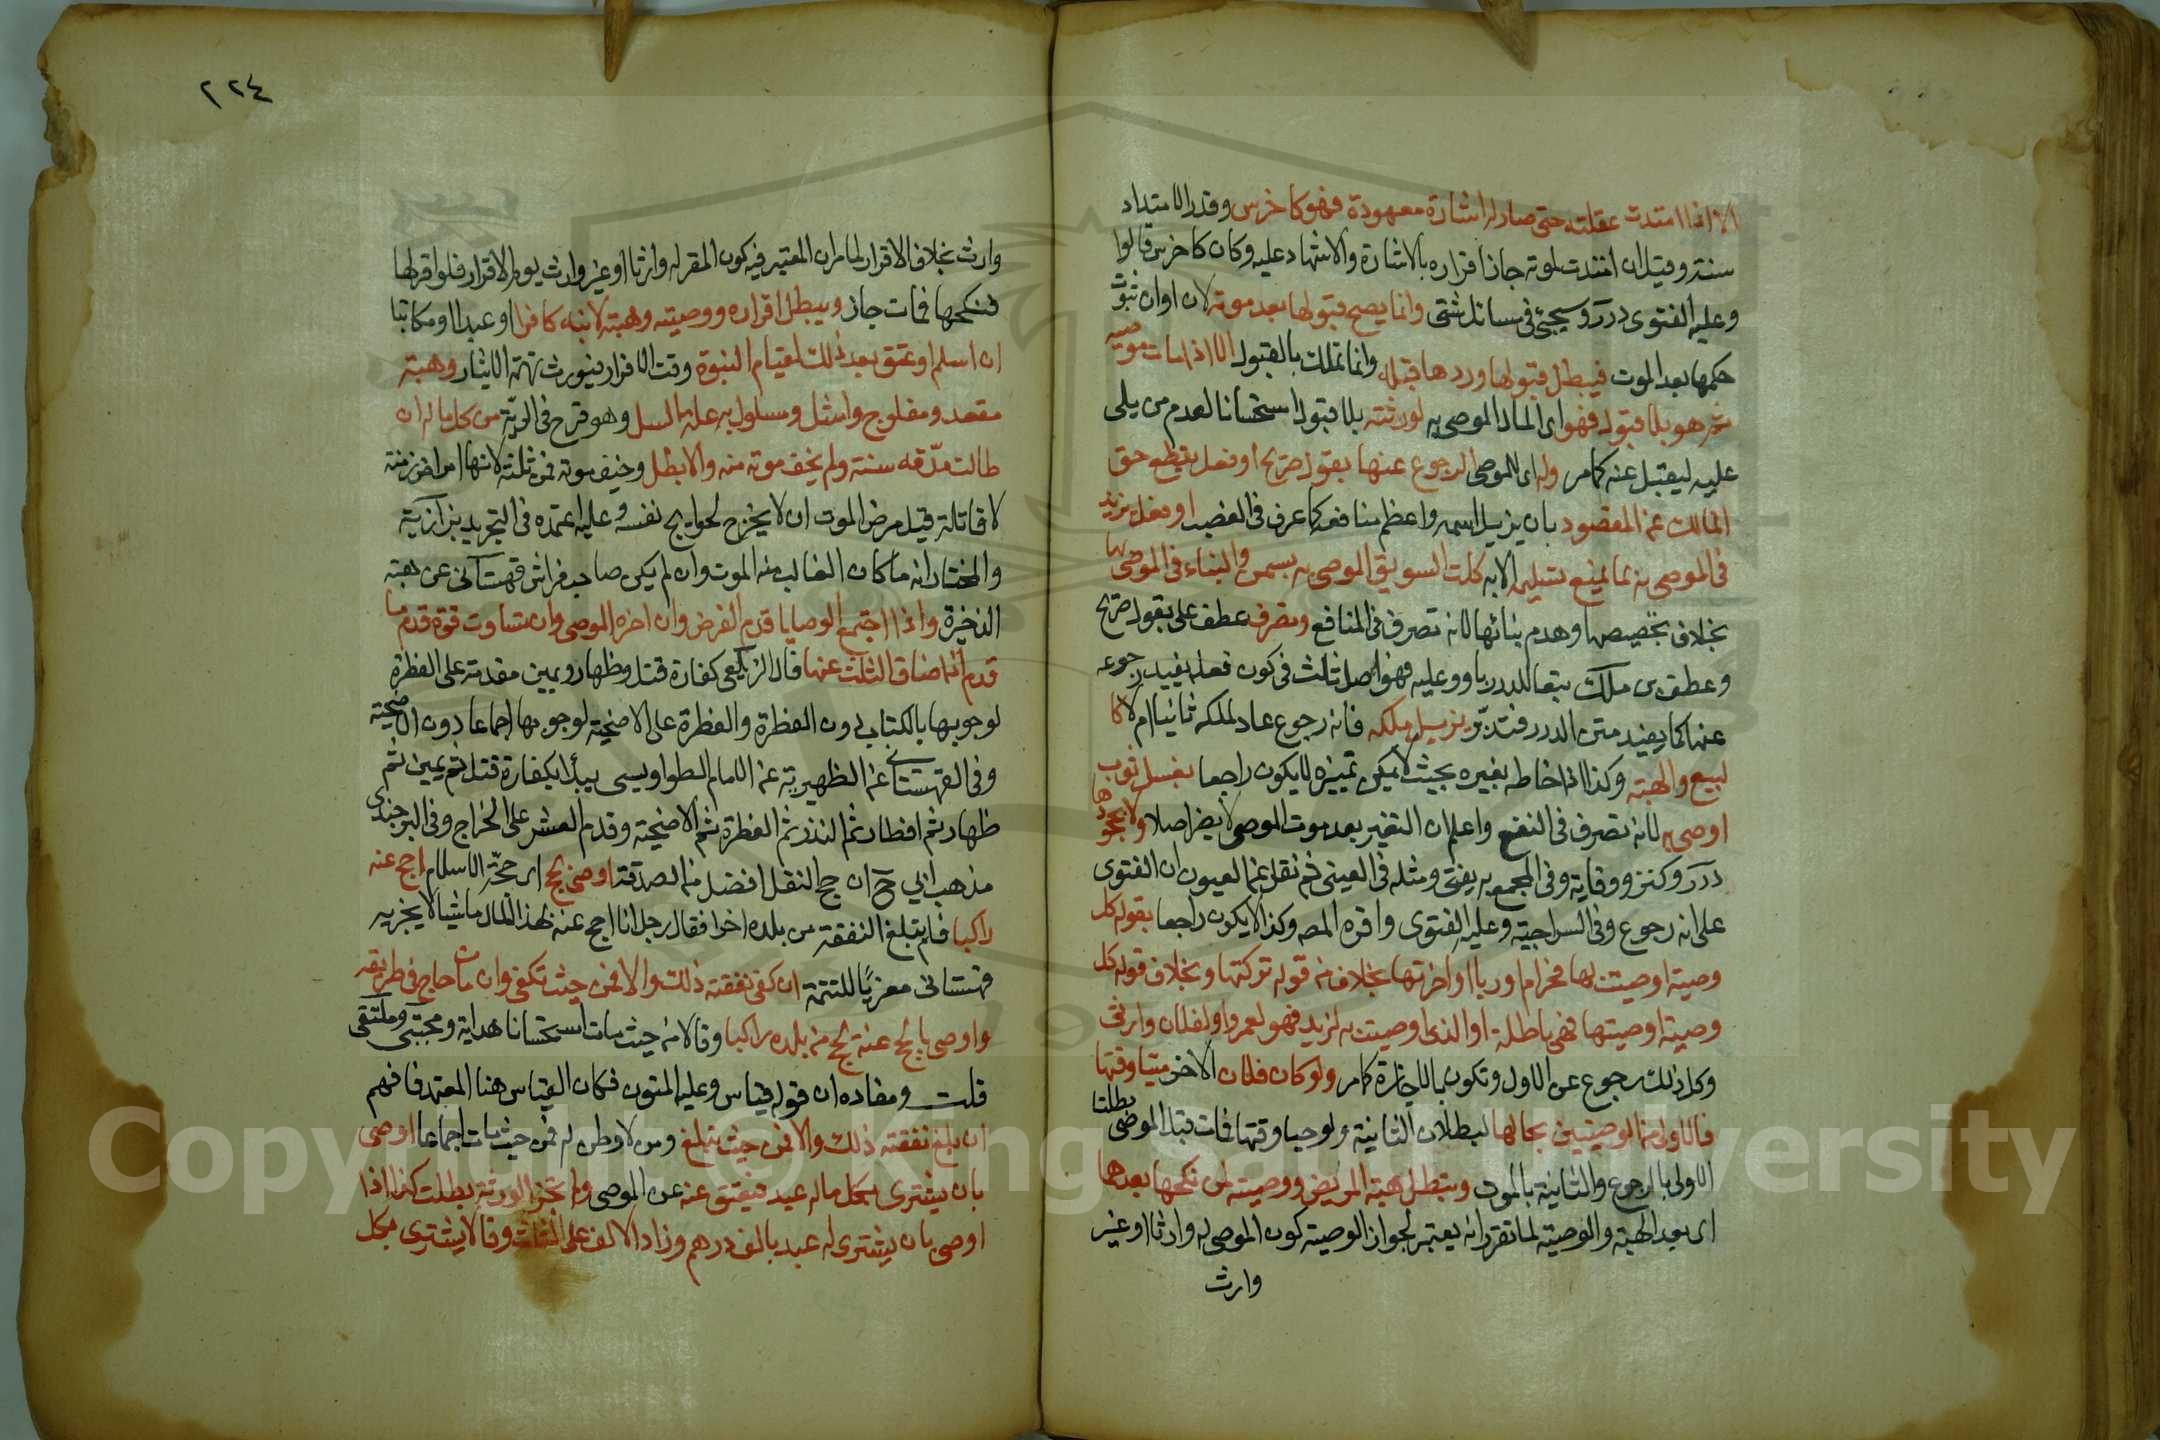 الا اذا امتدت عقلته حتى صار له اشارة معهودة فهو كاخرس وقدر الامتداد
سنة وقيل ان امتدت لموته جاز اقراره بالاشارة والاشهاد عليه وكان كاخرس قالوا
وعليه الفتوى درر وسيجئ في مسائل شتى وانما يصح قبولها بعد موته لان اوان ثبوت
حكمها بعد الموت فيبطل قبولها وردها قبله وانما تملك بالقبول الا اذا مات موصيه
ثم هو بلا قبول فهو اى المال الموصى به لورثته بلا قبول استحسانا لعدم من يلى
عليه ليقبل عنه كما مر وله اى للموصى الرجوع عنها بقول صريح او فعل يقطع حق
المالك عن المغصوب بان يزيل اسمه واعظم منافعه كما عرف في الغصب او فعل يزيد
فى الموصى به ما يمنع تسليمه الا به كلت السويق الموصى به بسمن والبناء في الموصى بها
بخلاف تجصيصها وهدم بنائها لانه تصرف في المنافع وتصرف عطف على بقول صريح
وعطف بن ملك تبعا للدرر باو وعليه فهو اصل ثالث في كون فعله يفيد رجوعه
عنها كما يفيد متن الدرر فتدبر يزيل ملكه فانه رجوع عاد لملكه ثانيا ام لا كا
لبيع والهبة وكذا اذا خلطه بغيره بحيث لا يمكن تمييزه لا يكون راجعا بغسل ثوب
اوصى به لانه تصرف في النفع واعلم ان التغير بعد موت الموصى لا يضر اصلا ولا بجحودها
درر وكنز ووقاية وفى المجمع به يفتى ومثله في العينى ثم نقل عن العيون ان الفتوى
على انه رجوع وفى السراجية وعليه الفتوى واقره المصـ وكذا لا يكون راجعا بقوله كل
وصية اوصيت بها فحرام او ربا او اخرتها بخلاف قوله تركتها وبخلاف قوله كل
وصية اوصيتها فهى باطلة او الذى اوصيت به لزيد فهو لعمرو او لفلان وارثى
وكل ذلك رجوع عن الاول وتكون بالاجازة كما مر ولو كان فلان الاخر ميتا وقتها
فالاولى من الوصيتين بحالها لبطلان الثانية ولو حيا وقتها فمات قبل الموصى بطلتا
الاولى بالرجوع والثانية بالموت وتبطل هبة المريض ووصيته لمن نكحها بعدها
اى بعد الهبة والوصية لما تقرر انه يعتبر لجواز الوصية كون الموصى له وارثا او غير
وارث
٢٢٤
وارث بخلاف الاقرار لما مر ان المعتبر فيه كون المقر له وارثا او غير وارث يوم الاقرار فلو اقر لها
فنكحها فمات جاز ويبطل اقراره ووصيته وهبته لابنه كافرا او عبدا او مكاتبا
ان اسلم او عتق بعد ذلك لقيام البنوة وقت الاقرار فيورث تهمة الايثار وهبة
مقعد ومفلوج واشل ومسلول به علة السل وهو قرح في الرية من كل ماله ان
طالت مدته سنة ولم يخف موته منه والا بطل وخيف موته فمن ثلثه لانها امراض مزمنة
لا قاتلة قيل مرض الموت ان لا يخرج لحوايج نفسه وعليه اعتمد في التجريد بزازية
والمختار انه ما كان الغالب منه الموت وان لم يكن صاحب فراش قهستانى عن هبة
الذخيرة واذا اجتمع الوصايا قدم الفرض وان اخره الموصى وان تساوت قوة قدم ما
قدم اذا ضاق الثلث عنها قال الزيلعى كفارة قتل وظهار ويمين مقدمة على الفطرة
لوجوبها بالكتاب دون الفطرة والفطرة على الاضحية لوجوبها اجماعا دون الاضحية
وفى القهستانى عن الظهيرية عن الامام الطواويسى يبدأ بكفارة قتل ثم يمين ثم
ظهار ثم افطار ثم النذر ثم الفطرة ثم الاضحية وقدم العشر على الخراج وفى البرجندى
مذهب ابى ح ان حج النفل افضل من الصدقة اوصى بحج اى حجة الاسلام احج عنه
راكبا فلم تبلغ النفقة من بلده اخر فقال رجل انا احج عنه بهذا المال ماشيا لا يجزيه
قهستانى معزيا للتتمة ان كفى نفقته ذلك والا فمن حيث تكفى وان مات حاج في طريقه
واوصى بالحج عنه يحج من بلده راكبا وقالا من حيث مات استحسانا هداية ومجتبى وملتقى
قلت ومفاده ان قوله قياس وعليه المتون فكان القياس هنا المعتمد فافهم
ان بلغ نفقته ذلك والا فمن حيث تبلغ ومن لا وطن له فمن حيث مات اجماعا اوصى
بان يشترى بكل ماله عبد فيعتق عنه عن الموصى ولم تجز الورثة بطلت كذا اذا
اوصى بان يشترى له عبد بالف درهم وزاد الالف على الثلث وقالا يشترى بكل
Copyright © King Saud University